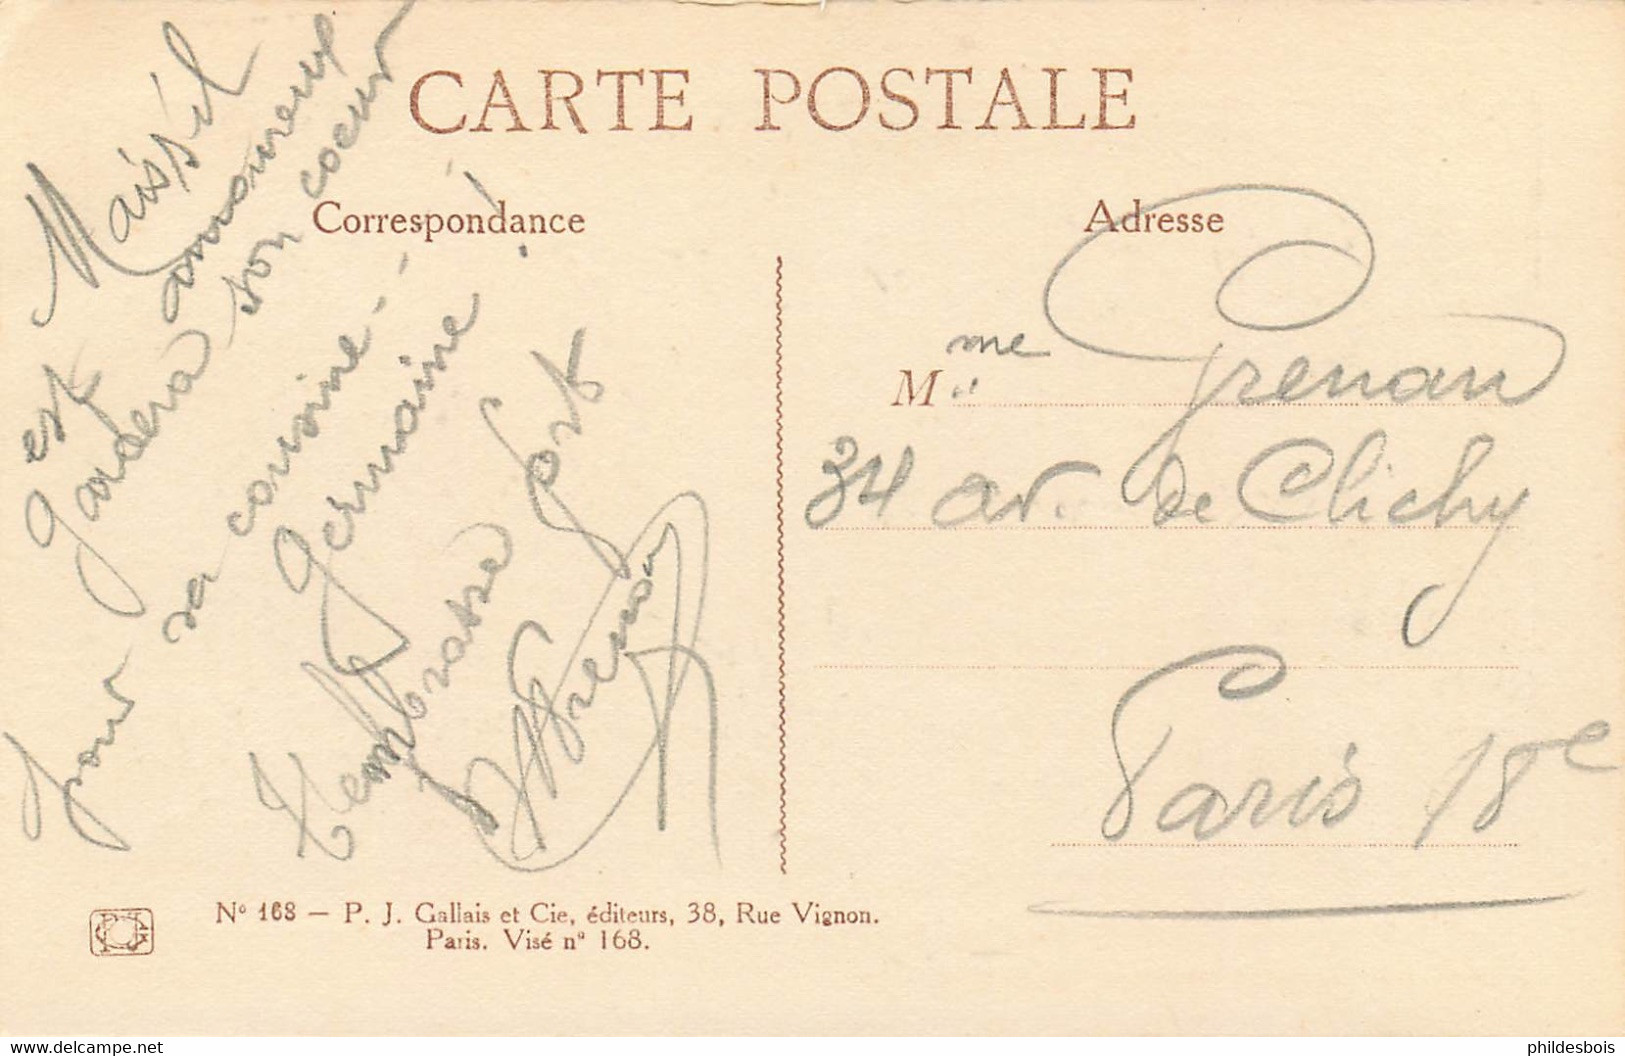 CARTE POSTALE
Correspondance
Adresse
Mais s'il
est amoureux
gardera son coeur
pour sa cousine - - !
Germaine !
T'embrasse fort
Prenan
M me Prenan
34 av. de Clichy
Paris 18e
N° 168 — P. J. Gallais et Cie, éditeurs, 38, Rue Vignon.
Paris. Visé n° 168.
Delcampe.net
phildesbois